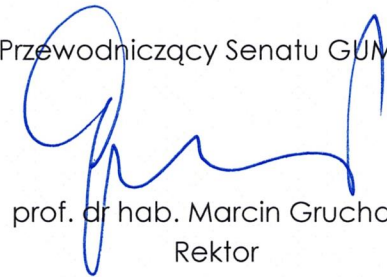 Przewodniczący Senatu GUM
prof. dr hab. Marcin Grucho
Rektor